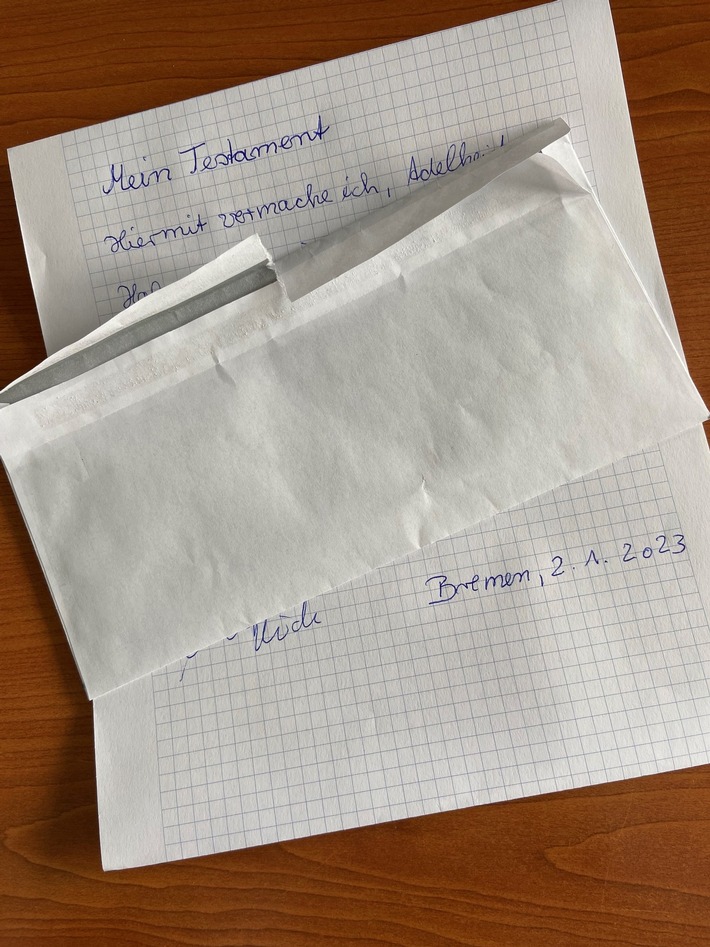 Mein Testament
Hiermit vermache ich, Adelhei
Bremen, 2.1.2023